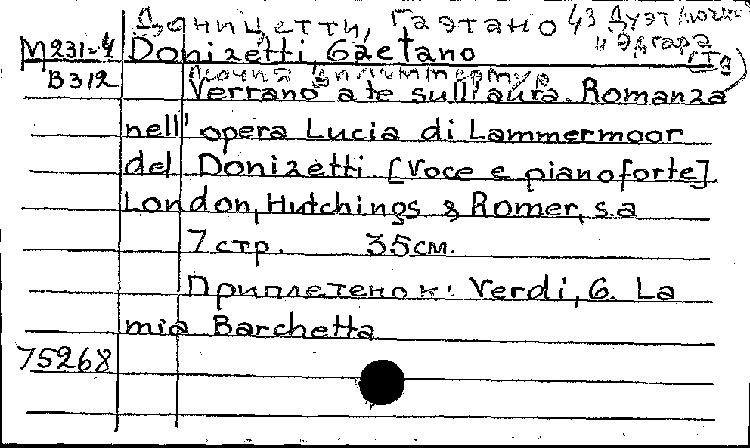 Доницетти, Гаэтано 43 Дуэт Лючии
и Эдгара
M231-4 Donizetti, Gaetano
B312 Лючия
Verrano a te sull'aura. Romanza
nell' opera Lucia di Lammermoor
del Donizetti [Voce e pianoforte]
London, Hutchings & Romer, s.a
7 стр. 35см.
Приплетено к: Verdi, G. La
mia Barchetta
75268